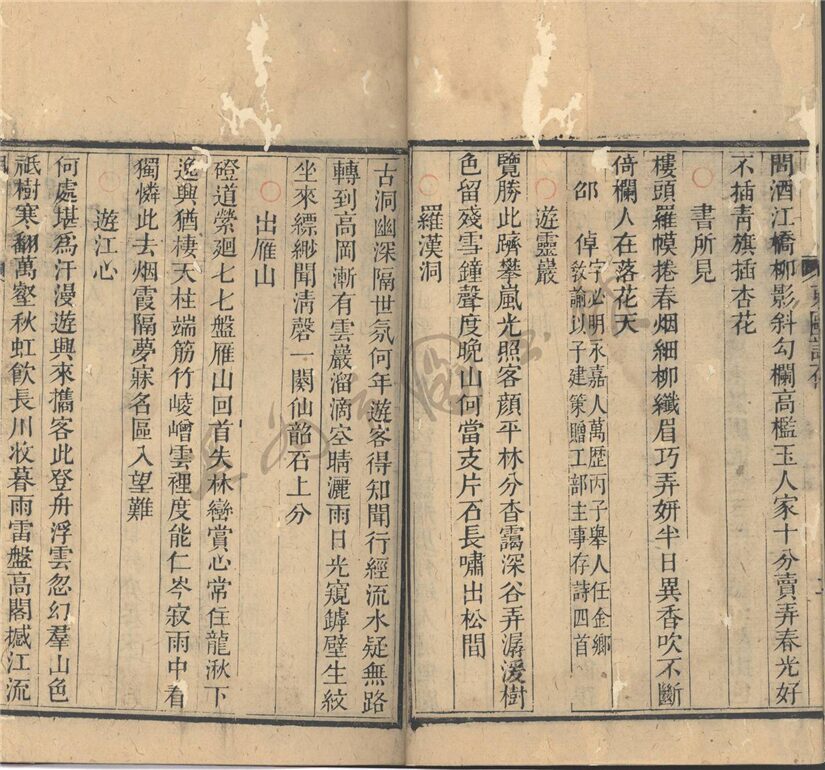 問酒江橋柳影斜勾欄高檻玉人家十分賣弄春光好
不插青旗插杏花
書所見
樓頭羅幙捲春烟細柳纖眉巧弄妍半日異香吹不斷
倚欄人在落花天
邵倬字必明永嘉人萬歷丙子舉人任金鄉
敎諭以子建策贈工部主事存詩四首
遊靈巖
覽勝此躋攀嵐光照客顔平林分杳靄深谷弄潺湲樹
色留殘雪鐘聲度晚山何當支片石長嘯出松間
羅漢洞
古洞幽深隔世氛何年遊客得知聞行經流水疑無路
轉到高岡漸有雲巖溜滴空晴灑雨日光窺罅壁生紋
坐來縹緲聞清磬一闋仙韶石上分
出雁山
磴道縈廻七七盤雁山回首失林巒賞心常住龍湫下
逸興猶棲天柱端筋竹崚嶒雲裡度能仁岑寂雨中看
獨憐此去烟霞隔夢寐名區入望難
遊江心
何處堪爲汗漫遊興來攜客此登舟浮雲忽幻羣山色
祇樹寒翻萬壑秋虹飲長川收暮雨雷盤高閣撼江流